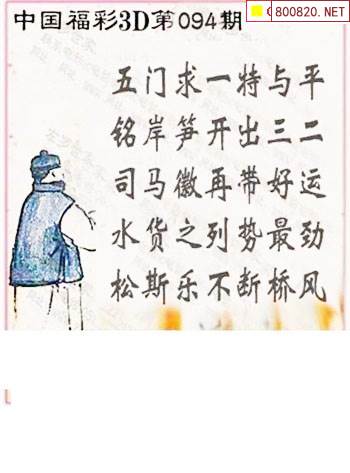 中国福彩3D第094期
800820.NET
五门求一特与平
铭岸笋开出三二
司马徽再带好运
水货之列势最劲
松斯乐不断桥风